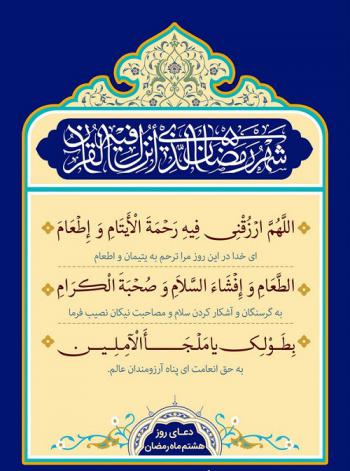 شهر رمضان الذي أنزل فيه القرآن
اللَّهُمَّ ارْزُقْنِي فِيهِ رَحْمَةَ الْأَيْتَامِ وَ إِطْعَامَ
ای خدا در این روز مرا ترحم به یتیمان و اطعام
الطَّعَامِ وَ إِفْشَاءَ السَّلَامِ وَ صُحْبَةَ الْكِرَامِ
به گرسنگان و آشکار کردن سلام و مصاحبت نیکان نصیب فرما
بِطَوْلِكَ يَا مَلْجَأَ الْآمِلِينَ
به حق انعامت ای پناه آرزومندان عالم.
دعای روز
هشتم ماه رمضان